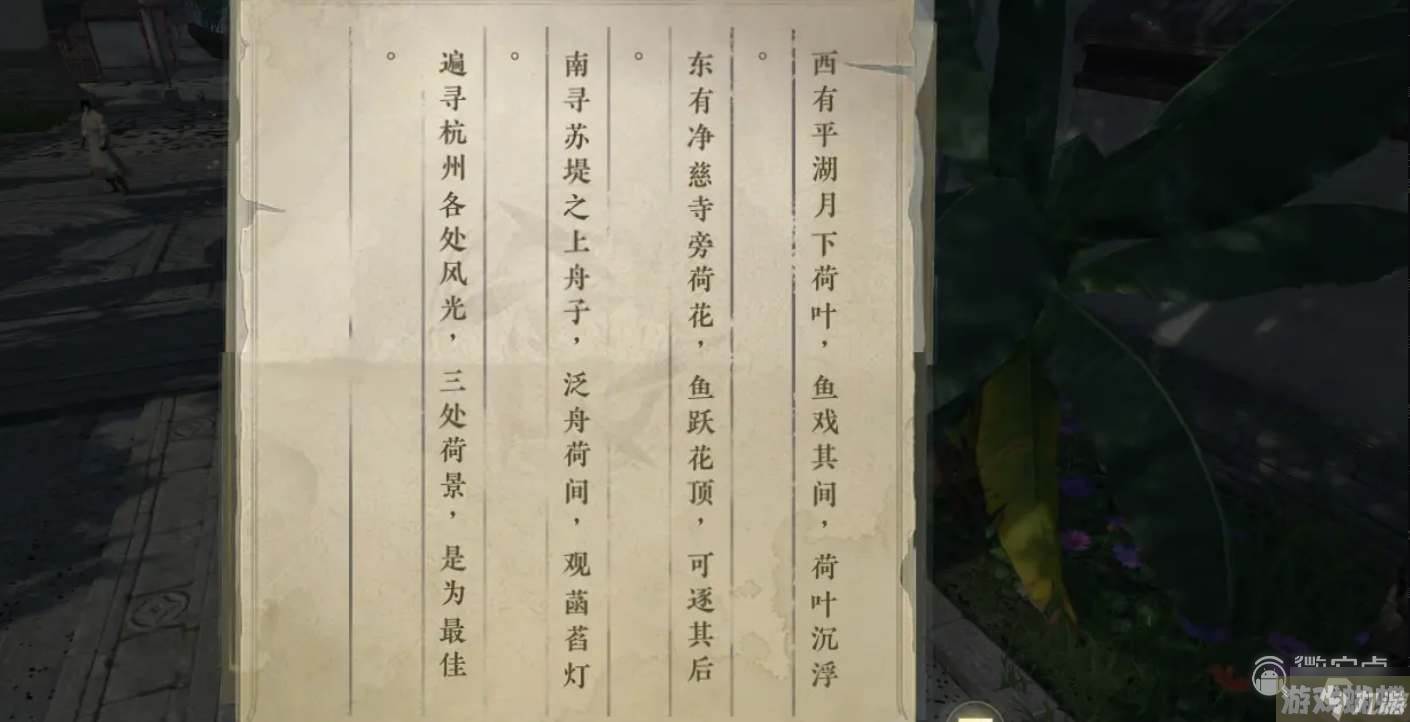 西有平湖月下荷叶，鱼戏其间，荷叶沉浮
。
东有净慈寺旁荷花，鱼跃花顶，可逐其后
。
南寻苏堤之上舟子，泛舟荷间，观菡萏灯
。
遍寻杭州各处风光，三处荷景，是为最佳
。
九游